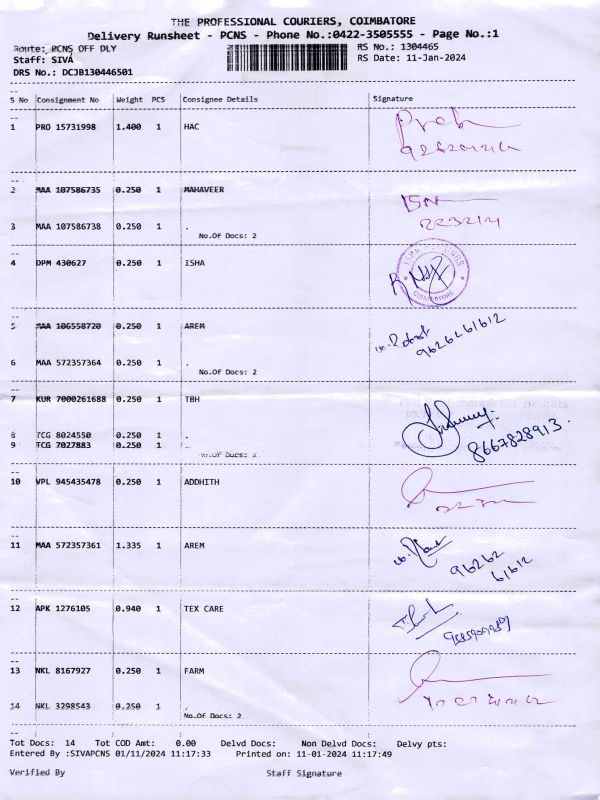 THE PROFESSIONAL COURIERS, COIMBATORE
Delivery Runsheet - PCNS - Phone No.:0422-3505555 - Page No.:1
Route: PCNS OFF DLY
RS No.: 1304465
Staff: SIVA
RS Date: 11-Jan-2024
DRS No.: DCJB130446501
S No Consignment No Weight PCS Consignee Details Signature
1 PRO 15731998 1.400 1 HAC
2 MAA 107586735 0.250 1 MAHAVEER
3 MAA 107586738 0.250 1 .
No.Of Docs: 2
4 DPM 430627 0.250 1 ISHA
COIMBATORE
5 MAA 106558720 0.250 1 AREM
9626261612
6 MAA 572357364 0.250 1 .
No.Of Docs: 2
7 KUR 7000261688 0.250 1 TBH
8667828913
8 TCG 8024550 0.250 1 .
9 TCG 7027883 0.250 1 .
No.Of Docs: 3
10 VPL 945435478 0.250 1 ADDHITH
11 MAA 572357361 1.335 1 AREM
96262
61612
12 APK 1276105 0.940 1 TEX CARE
13 NKL 8167927 0.250 1 FARM
14 NKL 3298543 0.250 1 .
No.Of Docs: 2
Tot Docs: 14 Tot COD Amt: 0.00 Delvd Docs: Non Delvd Docs: Delvy pts:
Entered By :SIVAPCNS 01/11/2024 11:17:33 Printed on: 11-01-2024 11:17:49
Verified By Staff Signature